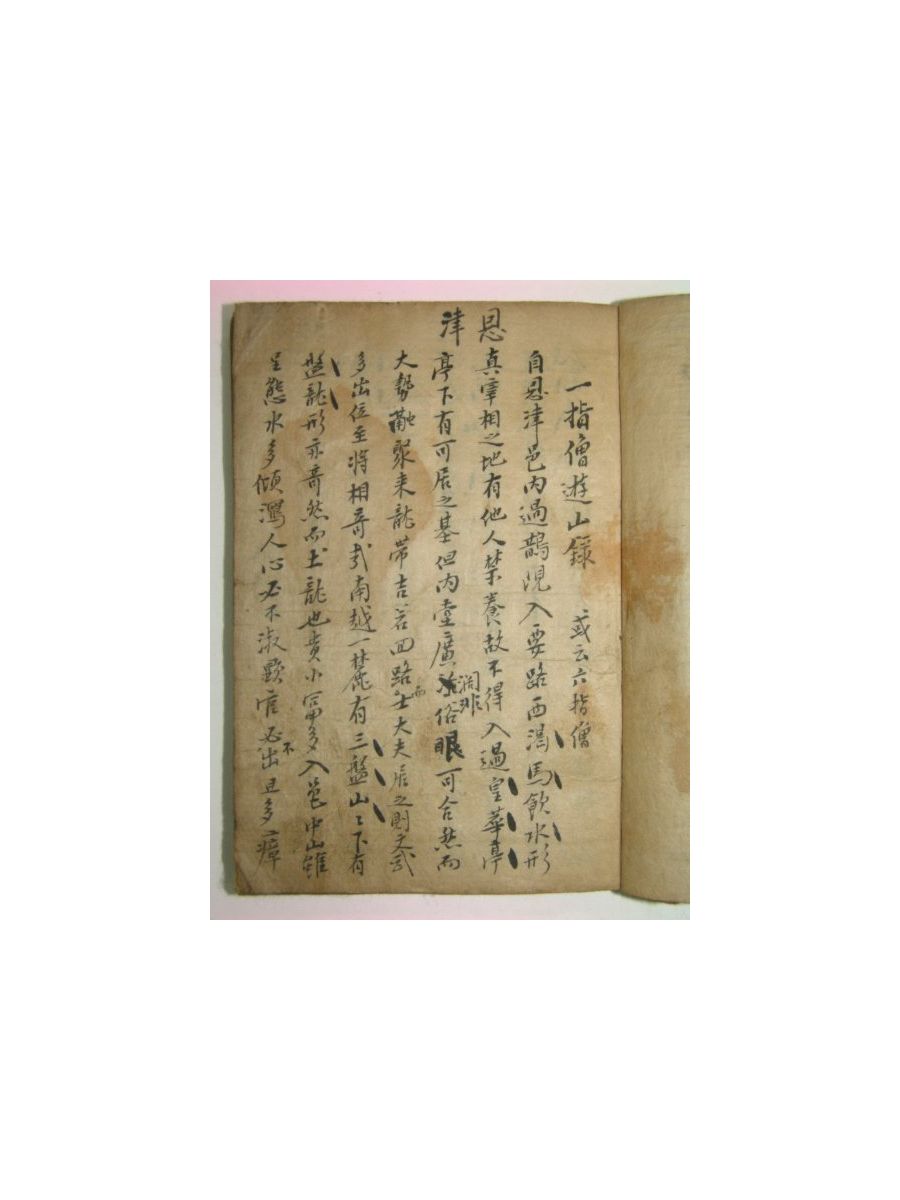 一指僧遊山錄 或云六指僧
恩津
自恩津邑內過鵲峴入要路西渴馬飮水形
真宰相之地有他人禁養故不得入過皇華亭
亭下有可居之基但內堂廣濶非俗眼可合然而
大勢融聚來龍帶吉若四路士大夫居之則文武
多出位至將相奇哉南越一麓有三盤山〻下有
盤龍形亦奇然而土龍也貴小富多入邑中山雖
呈態水多傾瀉人心必不淑顯官必不出且多瘴